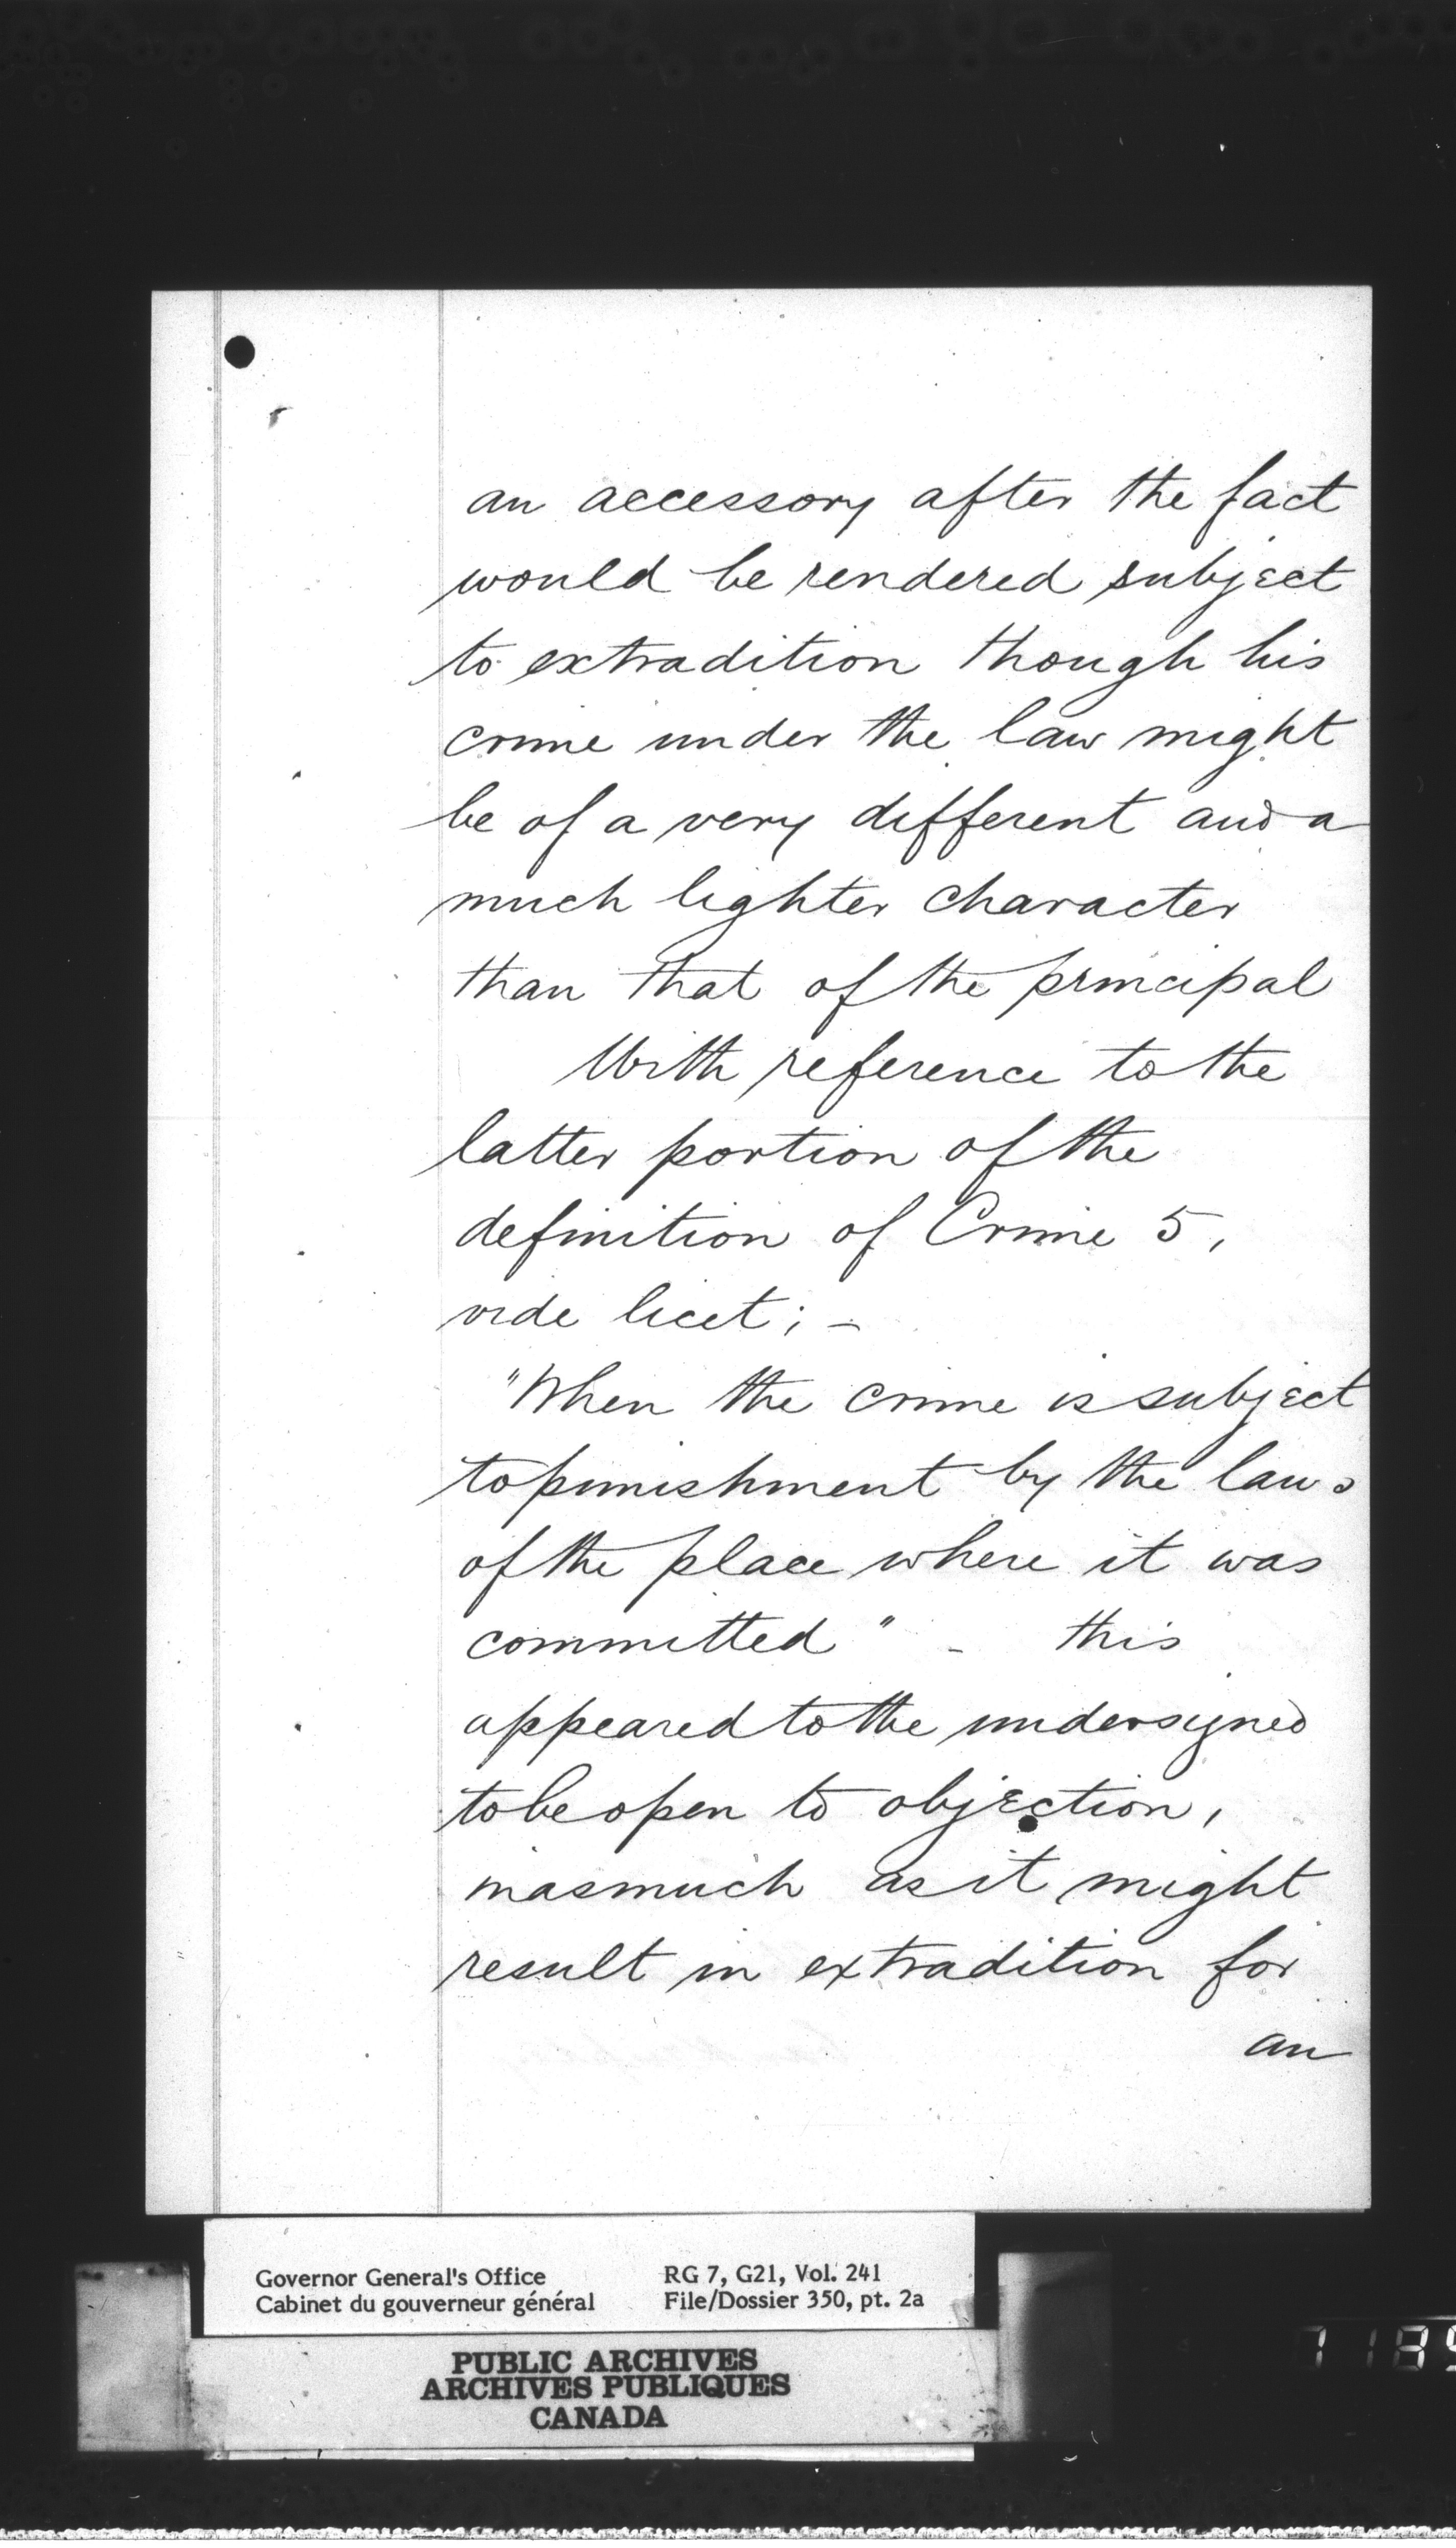 an accessory after the fact
would be rendered subject
to extradition though his
crime under the law might
be of a very different and a
much lighter character
than that of the principal
With reference to the
latter portion of the
definition of Crime 5,
vide licet; -
"When the crime is subject
to punishment by the laws
of the place where it was
committed" - this
appeared to the undersigned
to be open to objection,
inasmuch as it might
result in extradition for
an
Governor General's Office
Cabinet du gouverneur général
RG 7, G21, Vol. 241
File/Dossier 350, pt. 2a
PUBLIC ARCHIVES
ARCHIVES PUBLIQUES
CANADA